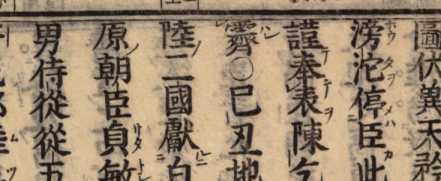 伏冀天
滂沱停臣此
謹奉表陳乞
霽○巳丑地
陸二國獻白
原朝臣貞敏
男侍從從五